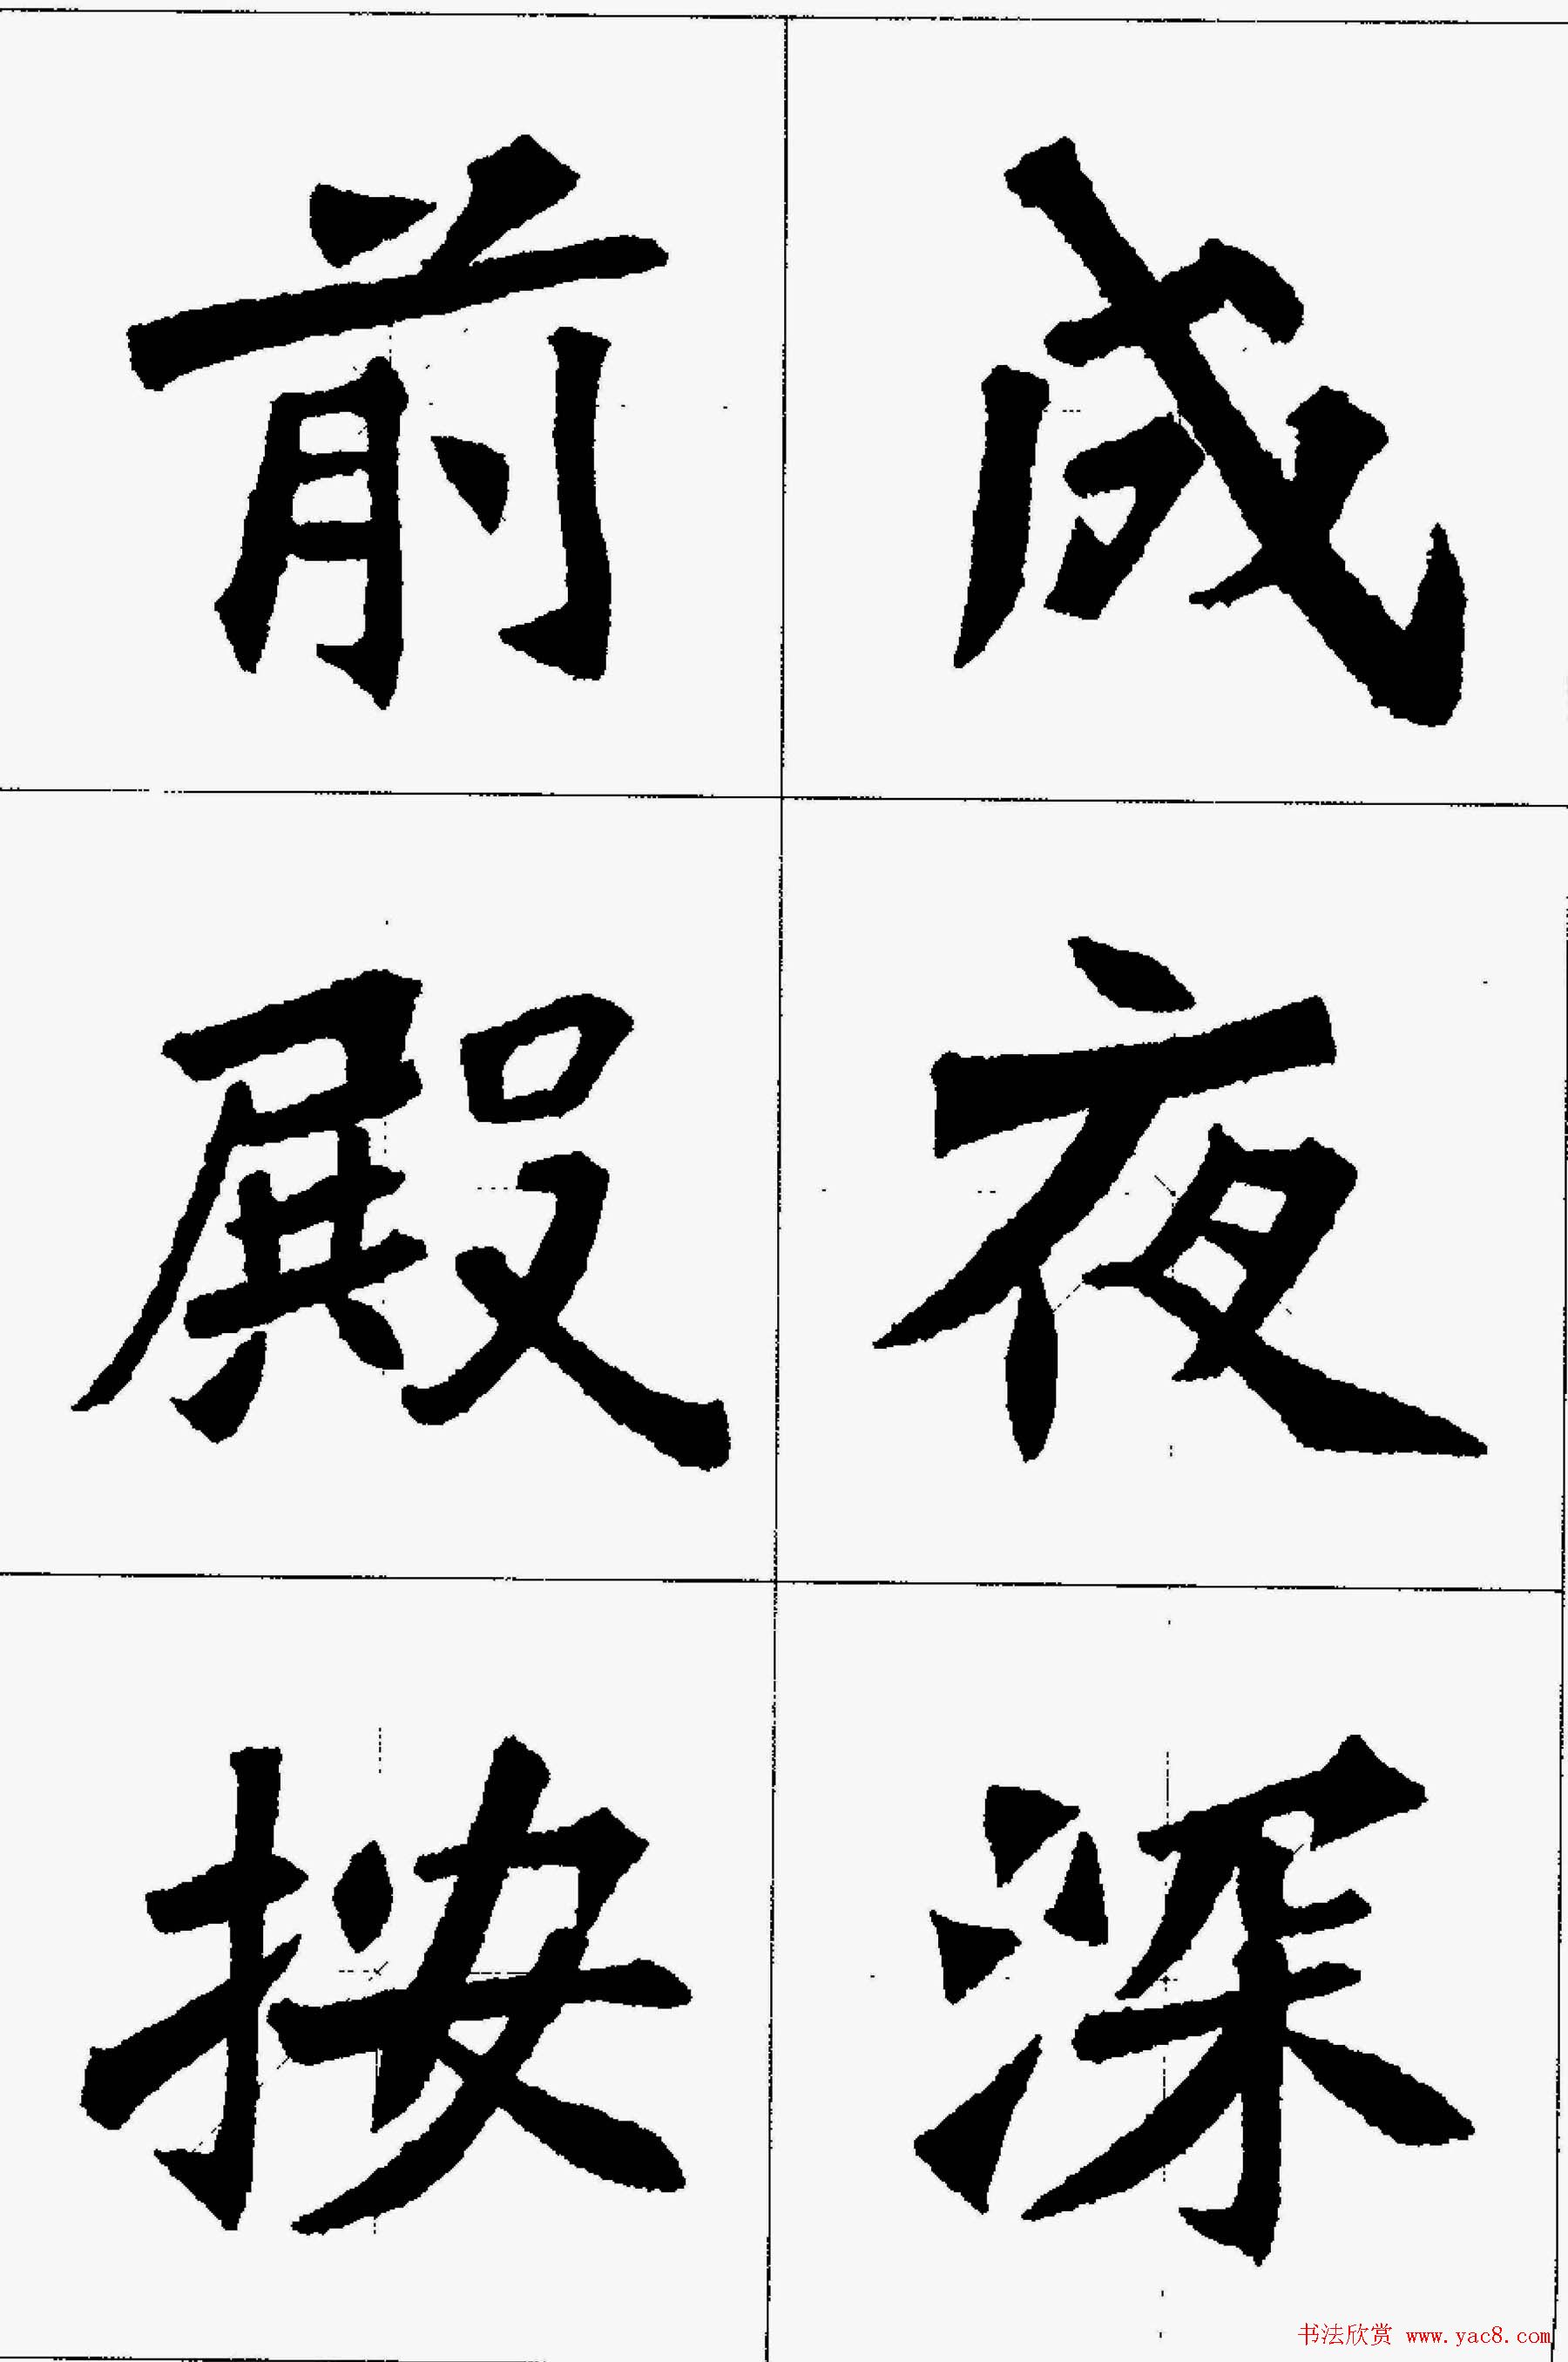 成夜深
前殿按
书法欣赏 www.yac8.com